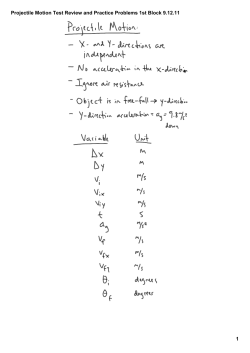 Projectile Motion Test Review and Practice Problems 1st Block 9.12.11
Projectile Motion:
- X- and Y-directions are
independent
- No acceleration in the x-direction
- Ignore air resistance
- Object is in free-fall → y-direction
- Y-direction acceleration = ag = 9.8 m/s²
down
Variable Unit
Δx m
Δy m
Vi m/s
Vix m/s
Viy m/s
t s
ag m/s²
Vf m/s
Vfx m/s
Vfy m/s
θi degrees
θf degrees
1